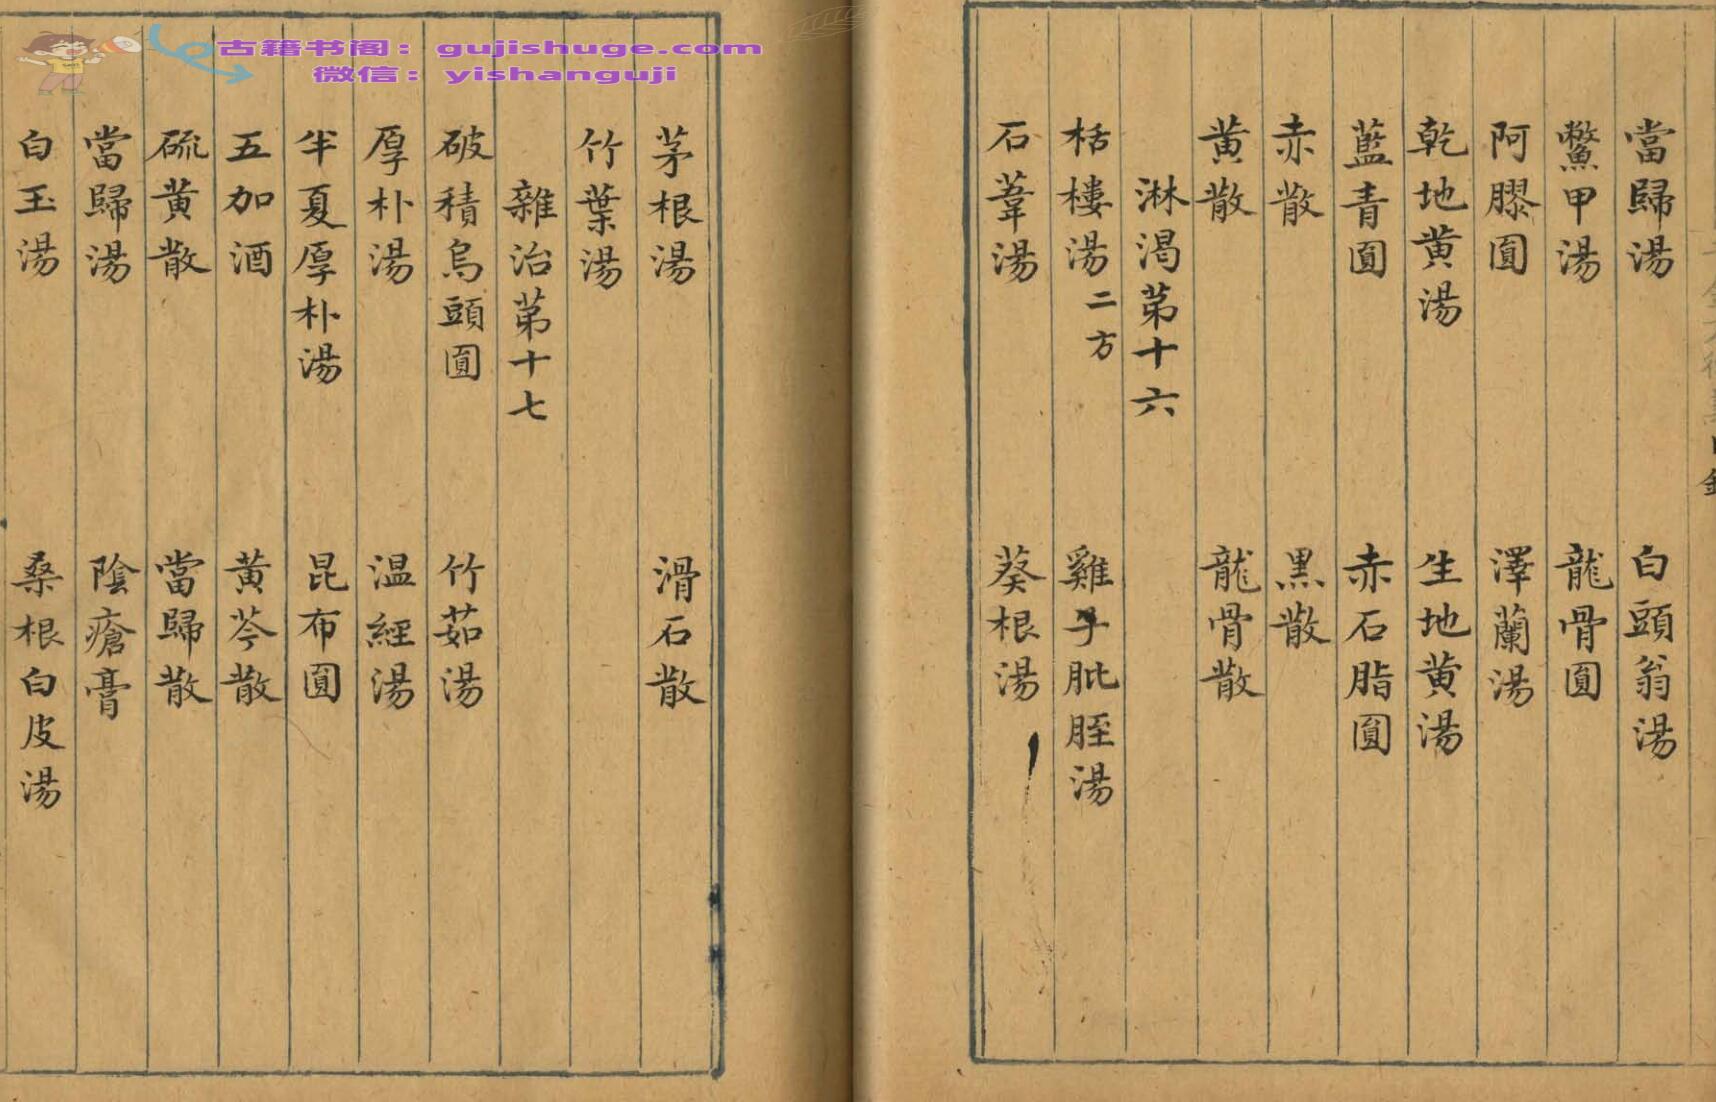 古籍书阁：gujishuge.com
微信：yishanguji
當歸湯 白頭翁湯
鱉甲湯 龍骨圓
阿膠圓 澤蘭湯
乾地黄湯 生地黄湯
藍青圓 赤石脂圓
赤散 黒散
黄散 龍骨散
淋渴第十六
栝樓湯二方 雞子肶胵湯
石葦湯 葵根湯
茅根湯 滑石散
竹葉湯
雜治第十七
破積烏頭圓 竹茹湯
厚朴湯 温經湯
半夏厚朴湯 昆布圓
五加酒 黄芩散
硫黄散 當歸散
當歸湯 陰瘡膏
白玉湯 桑根白皮湯